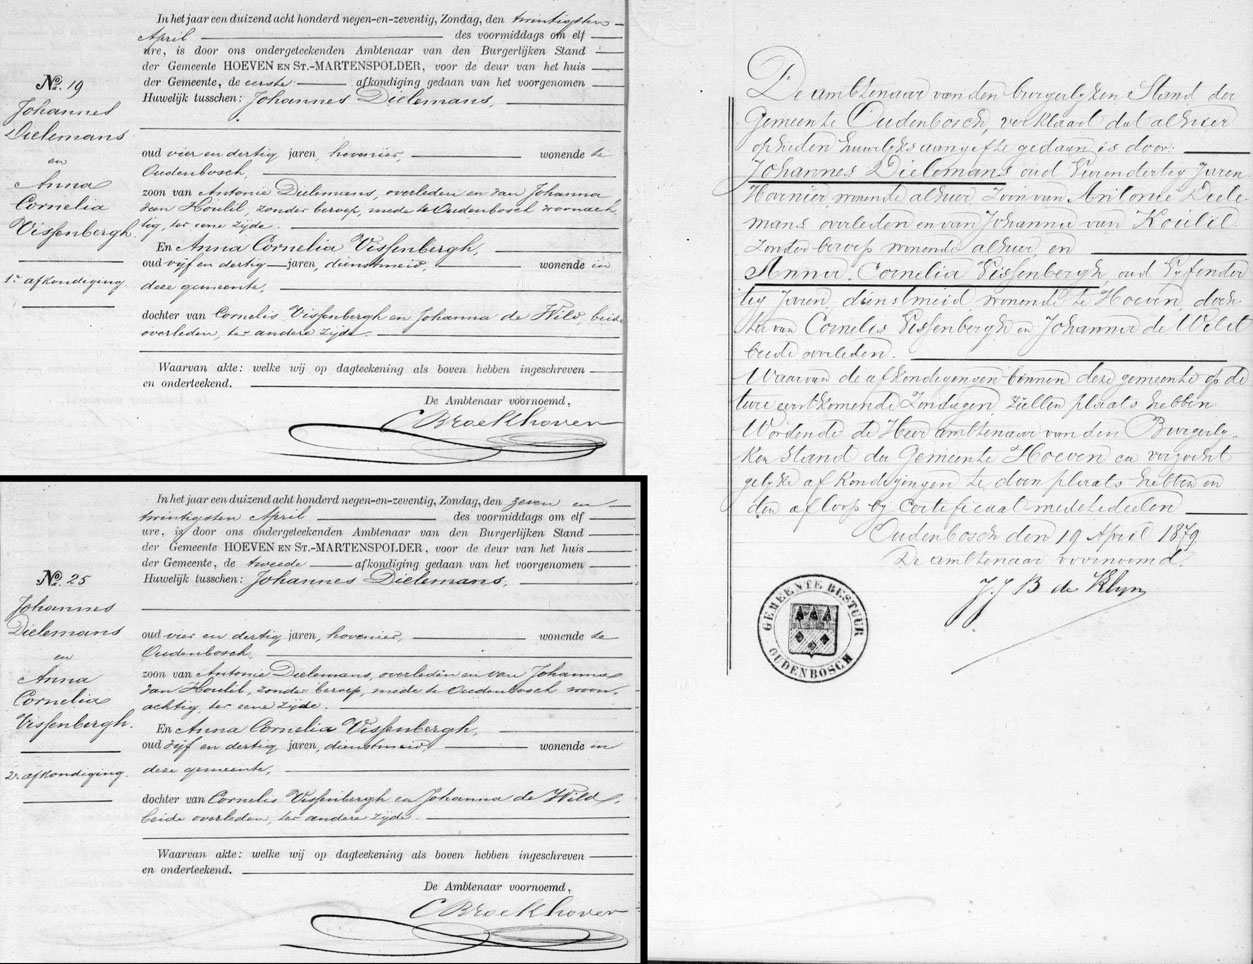 In het jaar een duizend acht honderd negen-en-zeventig, Zondag, den twintigsten
April des voormiddags om elf
ure, is door ons ondergeteekenden Ambtenaar van den Burgerlijken Stand
der Gemeente HOEVEN EN ST.-MARTENSPOLDER, voor de deur van het huis
der Gemeente, de eerste afkondiging gedaan van het voorgenomen
Huwelijk tusschen: Johannes Dielemans,
oud vier en dertig jaren, hovenier, wonende te
Oudenbosch,
zoon van Antonie Dielemans, overleden en van Johanna
van Houlil, zonder beroep, mede te Oudenbosch woonach
tig, ter eene zijde.
En Anna Cornelia Vissenbergh,
oud vijf en dertig jaren, dienstmeid, wonende in
deze gemeente,
dochter van Cornelis Vissenbergh en Johanna de Wild, beide
overleden, ter andere zijde.
Waarvan akte: welke wij op dagteekening als boven hebben ingeschreven
en onderteekend.
De Ambtenaar voornoemd,
C Broekhoven
No. 19
Johannes
Dielemans
en
Anna
Cornelia
Vissenbergh.
1e afkondiging
In het jaar een duizend acht honderd negen-en-zeventig, Zondag, den zeven en
twintigsten April des voormiddags om elf
ure, is door ons ondergeteekenden Ambtenaar van den Burgerlijken Stand
der Gemeente HOEVEN EN ST.-MARTENSPOLDER, voor de deur van het huis
der Gemeente, de tweede afkondiging gedaan van het voorgenomen
Huwelijk tusschen: Johannes Dielemans,
oud vier en dertig jaren, hovenier, wonende te
Oudenbosch,
zoon van Antonie Dielemans, overleden en van Johanna
van Houlil, zonder beroep, mede te Oudenbosch woon-
achtig, ter eene zijde.
En Anna Cornelia Vissenbergh,
oud vijf en dertig jaren, dienstmeid, wonende in
deze gemeente,
dochter van Cornelis Vissenbergh en Johanna de Wild,
beide overleden, ter andere zijde.
Waarvan akte: welke wij op dagteekening als boven hebben ingeschreven
en onderteekend.
De Ambtenaar voornoemd,
C Broekhoven
No. 25
Johannes
Dielemans
en
Anna
Cornelia
Vissenbergh.
2e afkondiging
De ambtenaar van den burgerlijken Stand der
Gemeente Oudenbosch, verklaart dat alhier
opheden huwelijks aangifte gedaan is door:
Johannes Dielemans oud Vierendertig Jaren
Hovenier wonende alhier Zoon van Antonie Diele
mans overleden en van Johanna van Koulil
zonder beroep wonende alhier, en
Anna Cornelia Vissenbergh oud Vyfender
tig Jaren, dienstmeid wonende te Hoeven doch
ter van Cornelis Vissenbergh en Johanna de Wildt
beide overleden.
Waarvan de afkondigingen binnen deze gemeente op de
twee eerstkomende Zondagen zullen plaats hebben
Wordende de Heer ambtenaar van den Burgerly
ken Stand der Gemeente Hoeven en verzocht
gelyke afkondigingen te doen plaats hebben en
den afloop by Certificaat mede te deelen
Oudenbosch den 19 April 1879
De ambtenaar voornoemd.
J. J B de Klyn
GEMEENTE BESTUUR
OUDENBOSCH